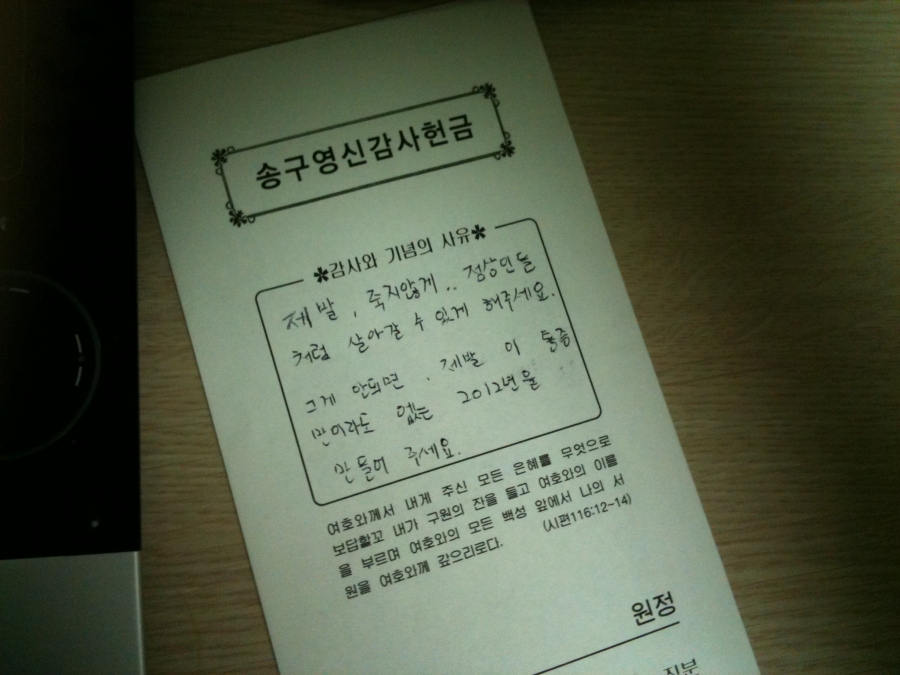 송구영신감사헌금
✽감사와 기념의 사유✽
제발, 죽지않게.. 정상인들
처럼 살아갈 수 있게 해주세요.
그게 안되면, 제발 이 통증
만이라도 없는 2012년을
만들어 주세요.
여호와께서 내게 주신 모든 은혜를 무엇으로
보답할꼬 내가 구원의 잔을 들고 여호와의 이름
을 부르며 여호와의 모든 백성 앞에서 나의 서
원을 여호와께 갚으리로다. (시편116:12~14)
원정
직분